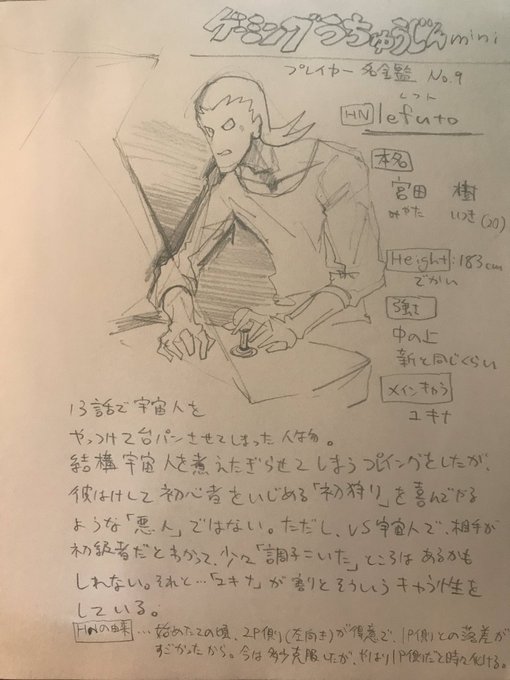 ゲーミングうちゅうじんmini
プレイヤー名鑑 No.9
レフト
HN lefuto
本名
宮田 樹
みやた いつき(20)
Height:183cm
でかい
強さ
中の上
新と同じくらい
メインキャラ
ユキナ
13話で宇宙人を
やっつけて台パンさせてしまった人物。
結構宇宙人を煮えたぎらせてしまうプレイングをしたが、
彼はけして初心者をいじめる「初狩り」を喜んでやる
ような「悪人」ではない。ただし、VS宇宙人で、相手が
初級者だとわかって、少々「調子こいた」ところはあるかも
しれない。それと…「ユキナ」が割とそういうキャラ性を
している。
HNの由来…始めたての頃、2P側(左向き)が得意で、1P側との落差が
すごかったから。今は多少克服したが、やはり1P側だと時々化ける。